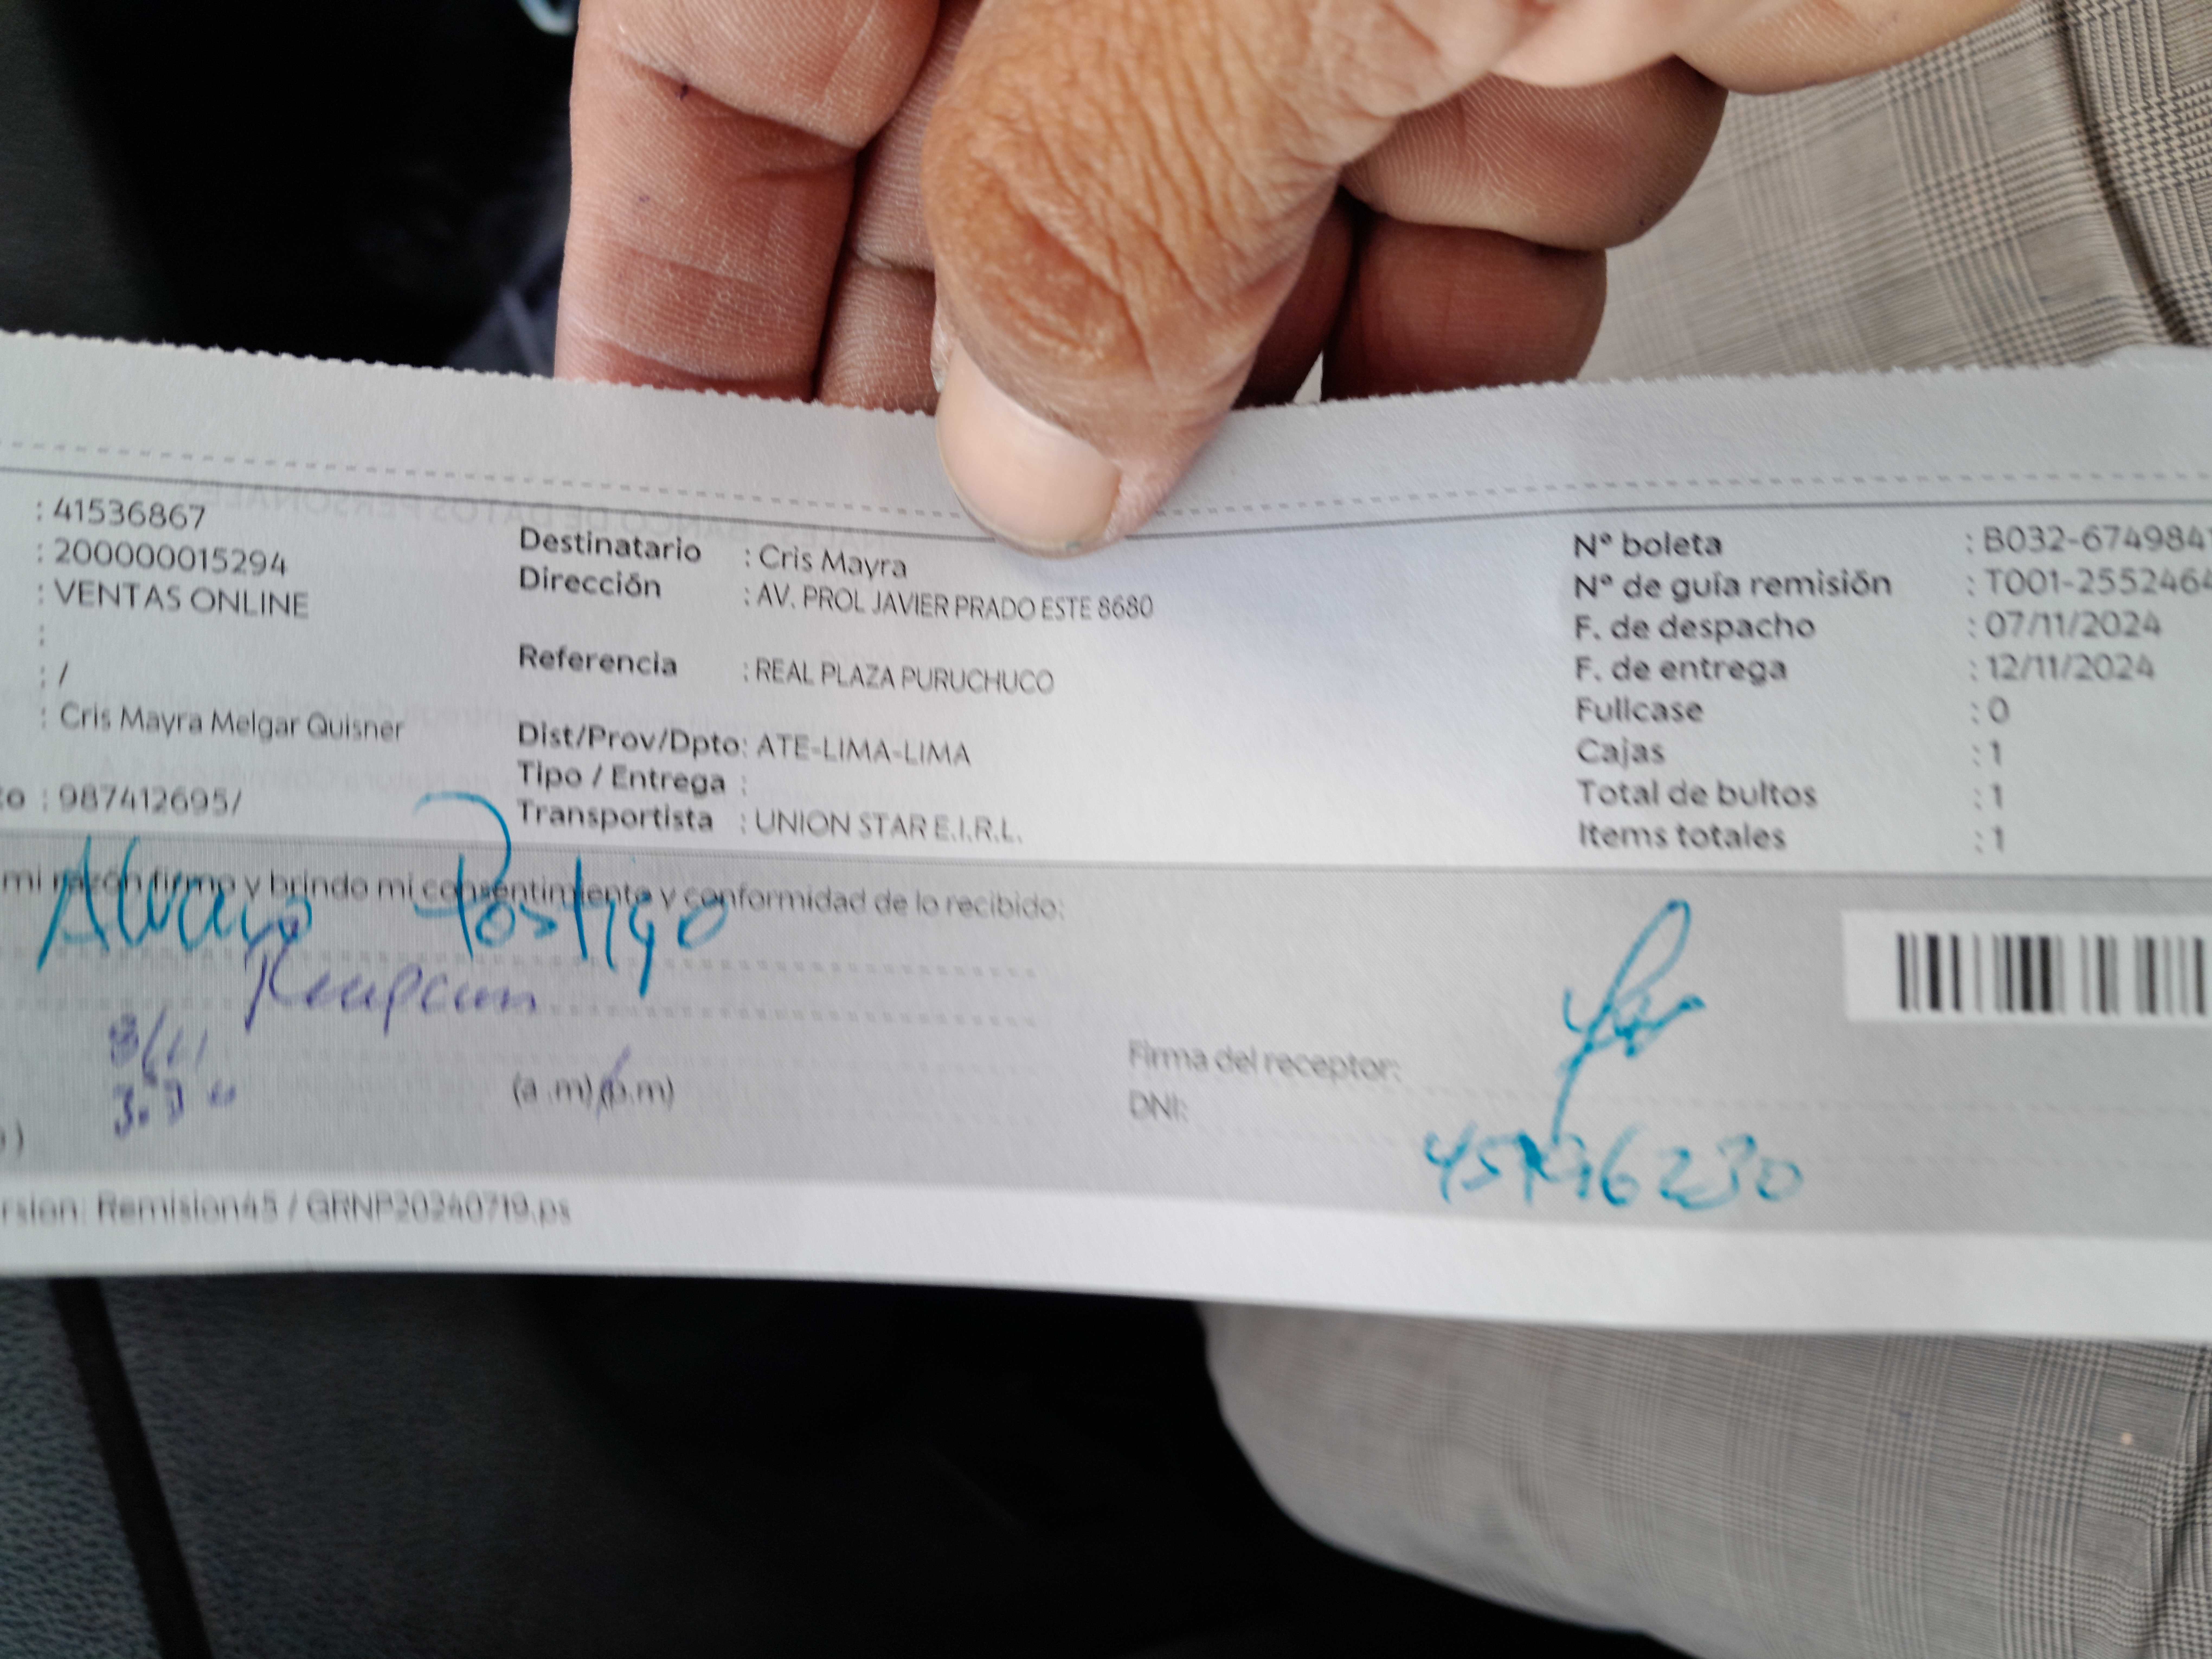 : 41536867
: 200000015294
: VENTAS ONLINE
:
: /
: Cris Mayra Melgar Quisner
to : 987412695/
Destinatario : Cris Mayra
Dirección : AV. PROL JAVIER PRADO ESTE 8680
Referencia : REAL PLAZA PURUCHUCO
Dist/Prov/Dpto: ATE-LIMA-LIMA
Tipo / Entrega :
Transportista : UNION STAR E.I.R.L.
N° boleta : B032-674984
N° de guía remisión : T001-255246
F. de despacho : 07/11/2024
F. de entrega : 12/11/2024
Fullcase : 0
Cajas : 1
Total de bultos : 1
Items totales : 1
mi razón firmo y brindo mi consentimiento y conformidad de lo recibido:
Alvaro Postigo
(a .m) (p.m)
Firma del receptor:
DNI:
rsion: Remision45 / GRNP20240719.ps